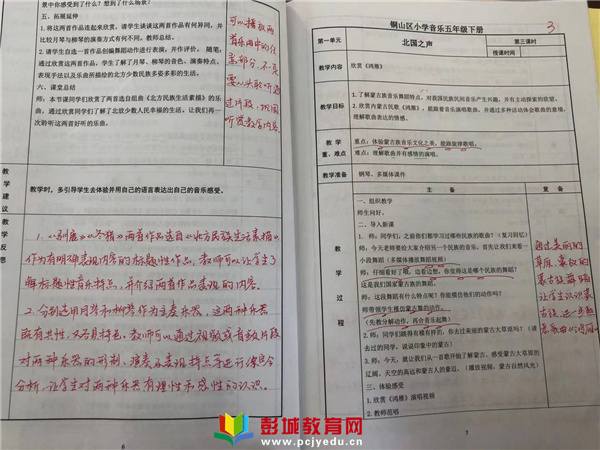 景中你感受到了什么？想到了什么场景？
五、拓展延伸
1. 将这两首作品连起来欣赏，请学生谈谈这两首作品有何异同，并
比较月琴与柳琴的演奏方式有何不同。教师总结。
2. 请学生自选一首作品创编舞蹈动作进行表演，并作评价。 随笔：
通过欣赏这两首作品，学生了解了月琴、柳琴的音色、演奏特点、
表现手法以及乐曲所描绘的北方少数民族多姿多彩的生活。
六、课堂总结
师：本节课同学们欣赏了两首选自组曲《北方民族生活素描》的乐
曲，通过欣赏同学们了解了北放少数人民丰富的生活，让我们再一
次聆听这两首好听的乐曲。
可以播放两
首乐曲中的任
意部分，不需
要从头听
过片段，巩固
听赏教学内容。
教学建议
教学时，多引导学生去体验并用自己的语言表达出自己的音乐感受。
教学反思
1.《驯鹿》《冬猎》两首作品选自《北方民族生活素描》
作为有明确表现内容的标题性作品，教师可以让学生了
解标题性音乐特点，并介绍两首作品表现的内容。
2. 分别运用月琴和柳琴作为主奏乐器，这两种乐器
既有共性，又各具特色。教师可以通过视频或音频片段
对两种乐器的形制、演奏及表现特点等进行
分析，让学生对两种乐器有理性和感性的认识。
6
铜山区小学音乐五年级下册
3
第一单元
北国之声
第三课时
授课时间
教学内容
欣赏《鸿雁》
教学目标
1.了解蒙古族音乐舞蹈特点，对我国民族民间音乐产生兴趣，并有主动探索的欲望。
2.欣赏内蒙古民歌《鸿雁》，能跟着音乐演唱歌曲，并通过多种活动体会歌曲的意境，
理解歌曲表达的情感。
教 学
重、难点
重点：体验蒙古族音乐文化之美，能跟旋律歌唱。
难点：理解歌曲并有感情的演唱。
教学准备
钢琴、多媒体课件
主 备
复 备
教学过程
一、组织教学
师生问好。
二、导入新课
1. 师：同学们，之前你们都学习过哪些民族的歌曲？（复习回忆）
师：今天老师要给大家介绍另一个民族的音乐，首先让我们来看一
小段舞蹈（多媒体播放舞蹈视频）
师：仔细看好了哦，边看边想，你觉得这是哪个民族的舞蹈？
这是我们国家蒙古族的舞蹈。
师：这段舞蹈有什么特点呢？你能模仿他们的动作吗？
师带领学生模仿蒙古舞的动作。
（先教分解动作，再合音乐起舞）
2. 师：同学们跳得有模有样的，你去过美丽的蒙古大草原吗？（请
去过的同学，说说印象中的蒙古）
3. 师：今天，就让我们从一首歌开始了解蒙古，感受蒙古大草原的
辽阔、天空的高远和蒙古人的豪迈。（播放视频，蒙古自然风光）
三、体验感受
1. 欣赏《鸿雁》演唱视频
2. 教师范唱
通过美丽的
草原、豪放的
蒙古族舞蹈
让学生认识蒙
古族，进一步
7
彭城教育网
www.pcjyedu.cn